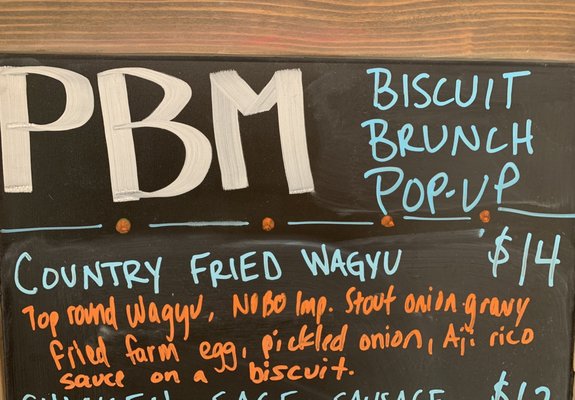 PBM
BISCUIT
BRUNCH
POP-UP
COUNTRY FRIED WAGYU $14
Top round Wagyu, NOBO Imp. Stout onion gravy
fried farm egg, pickled onion, Aji rico
sauce on a biscuit.
CHICKEN SAGE SAUSAGE $12